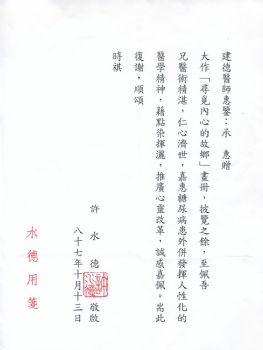 建德醫師惠鑒：承　惠贈
大作「尋覓內心的故鄉」畫冊，披覽之餘，至佩吾
兄醫術精湛，仁心濟世，嘉惠糖尿病患外併發揮人性化的
醫學精神，藉點染揮灑，推廣心靈改革，誠感嘉佩。耑此
復謝，順頌
時祺
許水德　敬啟
八十七年十月十三日
水德用箋